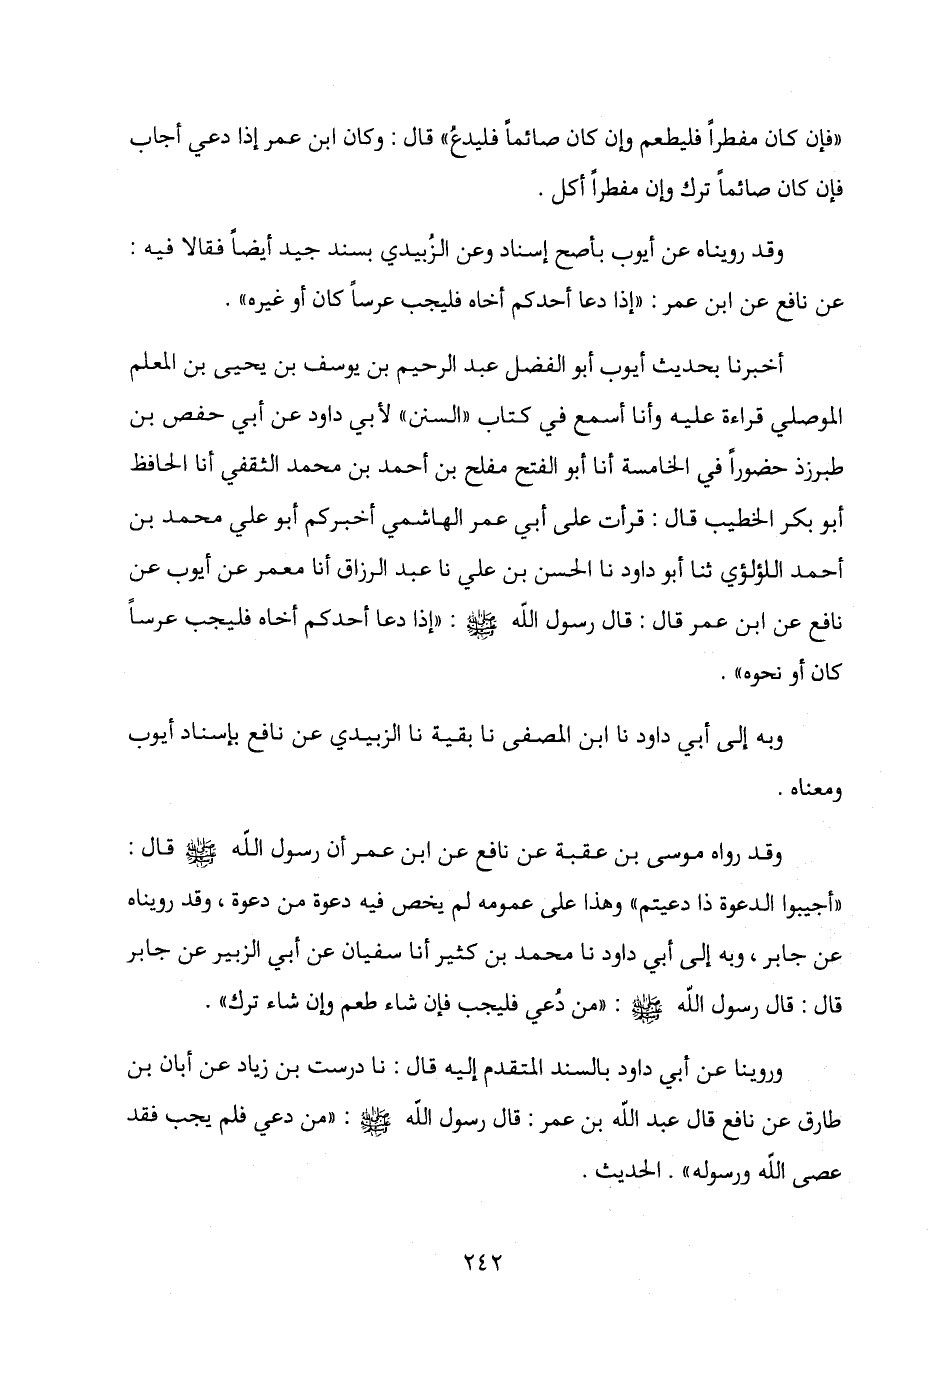 «فإن كان مفطراً فليطعم وإن كان صائماً فليدعُ» قال : وكان ابن عمر إذا دعي أجاب
فإن كان صائماً ترك وإن مفطراً أكل .
وقد رويناه عن أيوب بأصح إسناد وعن الزُبيدي بسند جيد أيضاً فقالا فيه :
عن نافع عن ابن عمر : «إذا دعا أحدكم أخاه فليجب عرساً كان أو غيره» .
أخبرنا بحديث أيوب أبو الفضل عبد الرحيم بن يوسف بن يحيى بن المعلم
الموصلي قراءة عليه وأنا أسمع في كتاب «السنن» لأبي داود عن أبي حفص بن
طبرزذ حضوراً في الخامسة أنا أبو الفتح مفلح بن أحمد بن محمد الثقفي أنا الحافظ
أبو بكر الخطيب قال : قرأت على أبي عمر الهاشمي أخبركم أبو علي محمد بن
أحمد اللؤلؤي ثنا أبو داود نا الحسن بن علي نا عبد الرزاق أنا معمر عن أيوب عن
نافع عن ابن عمر قال : قال رسول اللّه ﷺ : «إذا دعا أحدكم أخاه فليجب عرساً
كان أو نحوه» .
وبه إلى أبي داود نا ابن المصفى نا بقية نا الزبيدي عن نافع بإسناد أيوب
ومعناه .
وقد رواه موسى بن عقبة عن نافع عن ابن عمر أن رسول اللّه ﷺ قال :
«أجيبوا الدعوة ذا دعيتم» وهذا على عمومه لم يخص فيه دعوة من دعوة ، وقد رويناه
عن جابر ، وبه إلى أبي داود نا محمد بن كثير أنا سفيان عن أبي الزبير عن جابر
قال : قال رسول اللّه ﷺ : «من دُعي فليجب فإن شاء طعم وإن شاء ترك» .
وروينا عن أبي داود بالسند المتقدم إليه قال : نا درست بن زياد عن أبان بن
طارق عن نافع قال عبد اللّه بن عمر : قال رسول اللّه ﷺ : «من دعي فلم يجب فقد
عصى اللّه ورسوله» . الحديث .
٢٤٢